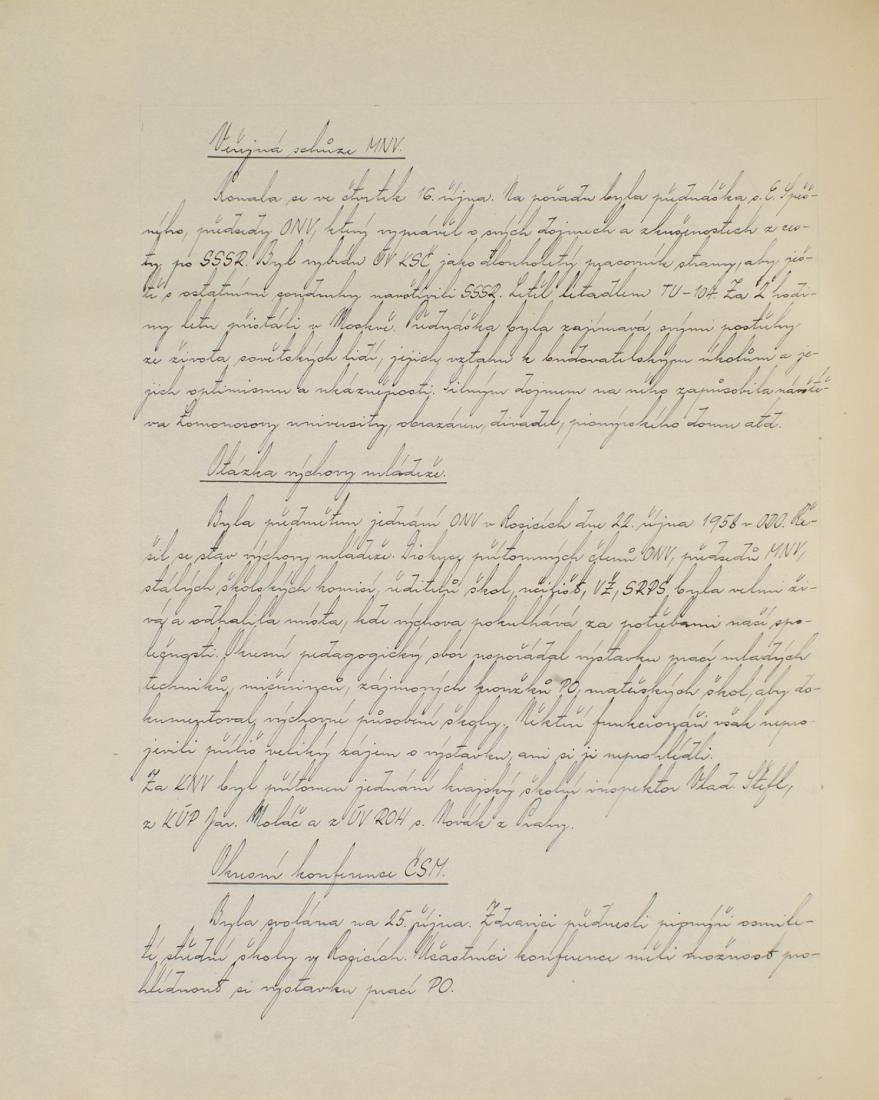 Veřejná schůze MNV.
Konala se ve čtvrtek 16. října. Na pořadu byla přednáška s. E. Špič-
ného, předsedy ONV, který vyprávěl o svých dojmech a zkušenostech z ces-
ty po SSSR. Byl vybrán ÚV KSČ jako dlouholetý pracovník strany, aby ješ-
tě s ostatními soudruhy navštívili SSSR. Letěl letadlem TU-104. Za 2 hodi-
ny letu přistáli v Moskvě. Přednáška byla zajímavá svými postřehy
ze života sovětských lidí, jejich vztahu k budovatelským úkolům a je-
jich optimismu a ukázněnosti. Silným dojmem na něho zapůsobila návště-
va Lomonosovy university, obrazáren, divadel, pionýrského domu atd.
Otázka výchovy mládeže.
Byla předmětem jednání ONV v Rosicích dne 22. října 1958 v ODO. Ře-
šil se stav výchovy mládeže. Diskuse přítomných členů ONV, předsedů MNV,
stálých školských komisí, ředitelů škol, učilišť, VŽ, SRPŠ byla velmi ži-
vá a odhalila místa, kde výchova pokulhává za potřebami naší spo-
lečnosti. Okresní pedagogický sbor uspořádal výstavku prací mladých
techniků, mičurinců, zájmových kroužků PO, mateřských škol, aby do-
kumentoval výchovné působení školy. Někteří funkcionáři však nepro-
jevili příliš veliký zájem o výstavku, ani si ji neprohlédli.
Za KNV byl přítomen jednání krajský školní inspektor Vlad. Štefl,
z KÚP Jar. Moláč a z ÚV ROH s. Novák z Prahy.
Okresní konference ČSM.
Byla svolána na 25. října. Zdravici přednesli pionýři osmile-
té střední školy v Rosicích. Účastníci konference měli možnost pro-
hlédnout si výstavku prací PO.